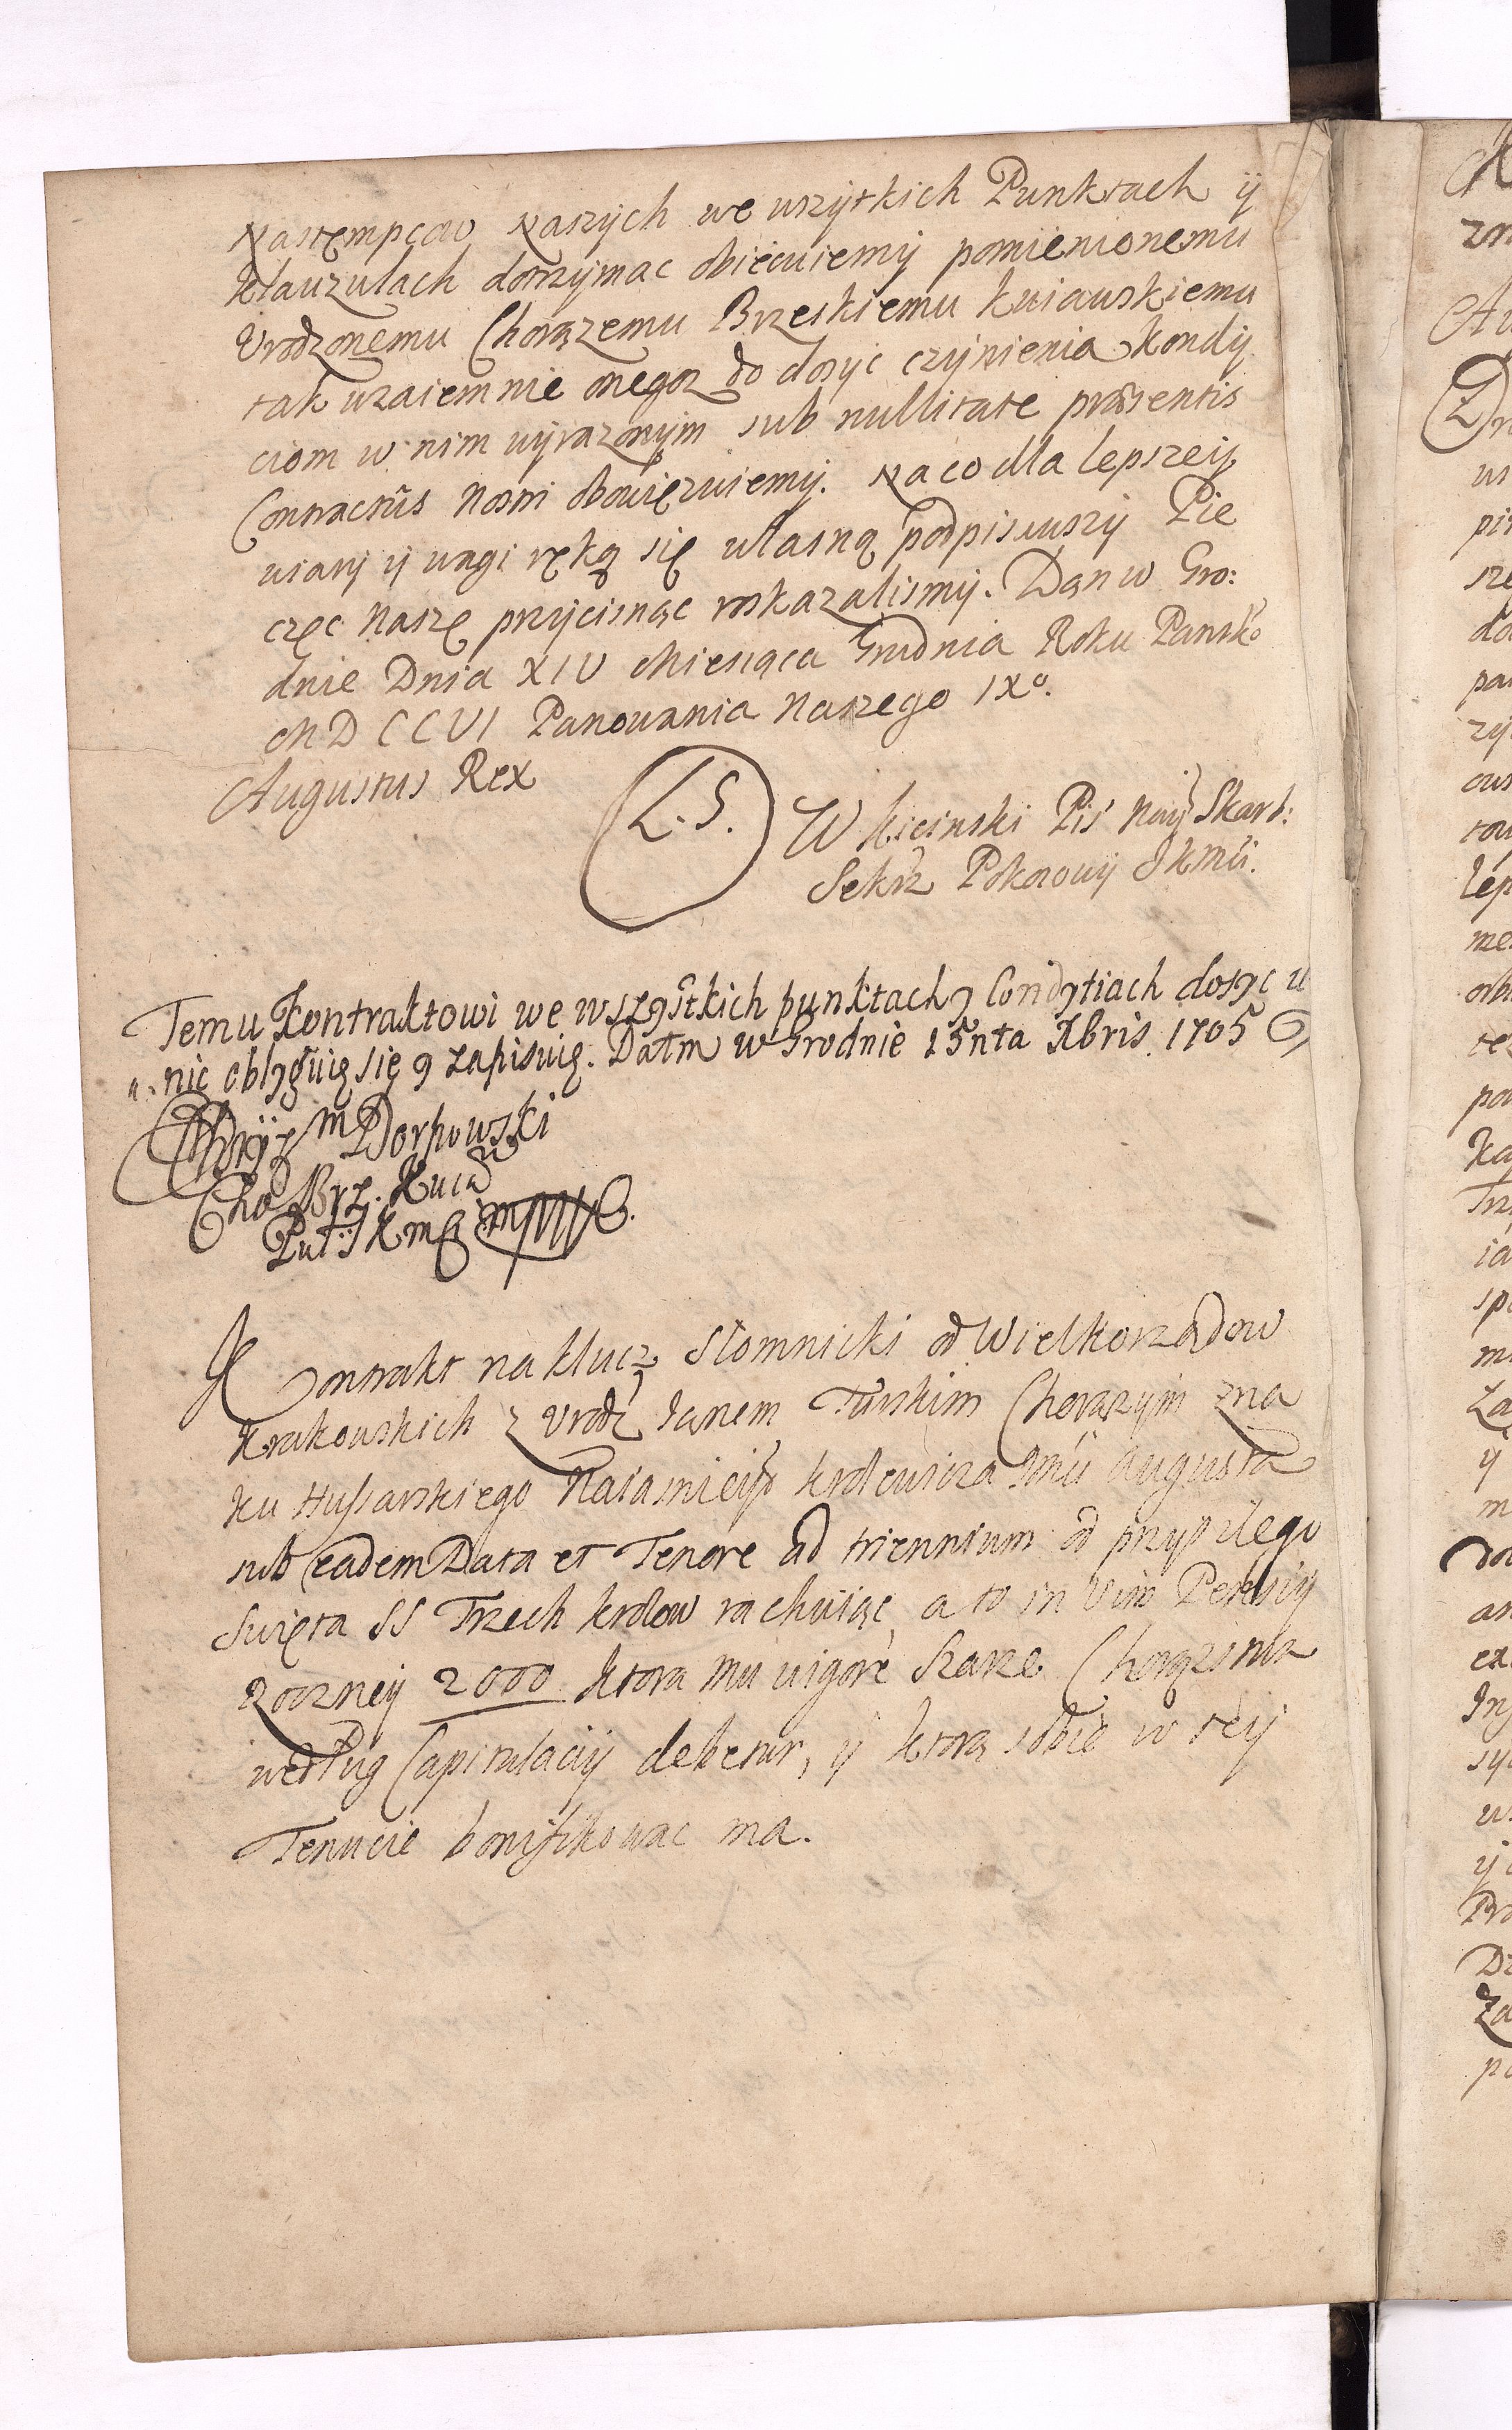 Nastempcow Naszych we wszytkich Punktach ij
Klauzulach dotrzymac obiecuiemij pomienionemu
Urodzonemu Chorązemu Brzeskiemu kuiawskiemu
tak wzaiemnie onegoz do dosyc czijnienia kondij
ciom w nim wijrazonijm sub nullitate præsentis
Contractus Nostri obowięzuiemij. Na co dla lepszeij
wiarij ij wagi ręką się własną podpisawszij Pie
częc Naszę przijcisnąc roskazalismij. Dan w Gro:
dnie Dnia XIV Miesiąca Grudnia Roku Pansko
MDCCVI Panowania Naszego IXo.
Augustus Rex
L. S.
W Kicinski Pis Naij Skarb:
Sekrz Pokoiowij JKMci.
Temu Kontraktowi we wszystkich punktach y Condytiach dosyc u
nic oblyguię się y zapisuię. Datm w Grodnie 15nta Xbris. 1705
Dorpowski
Cho Brz. Kuia
Puł: J K m
Kontrakt na klucz Słomnicki od Wielkorządow
Krakowskich z Urodz Janem Turskim Chorązym zna
ku Hussarskiego Naiasnieij krolewicza Jmci Augusta
sub eadem Data et Tenore ad triennium od przyszlego
Swięta SS Trzech krolow rachuiąc, a to in Vim Pensij
Roczneij 2000 ktora mu vigore Szarze Chorąstwa
według Capitulacij debetur, ij ktorą sobie w teij
Tenucie bonifikowac ma.